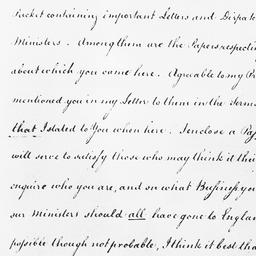 Packet containing important Letters and Dispatc
Ministers. Among them are the Papers respectin
about which you came here. Agreeable to my Pr
mentioned you in my Letter to them in the Terms
that I stated to You when here. I enclose a Pass
will serve to satisfy those who may think it thei
enquire who you are, and on what Business you
our Ministers should all have gone to Englan
possible though not probable, I think it best tha